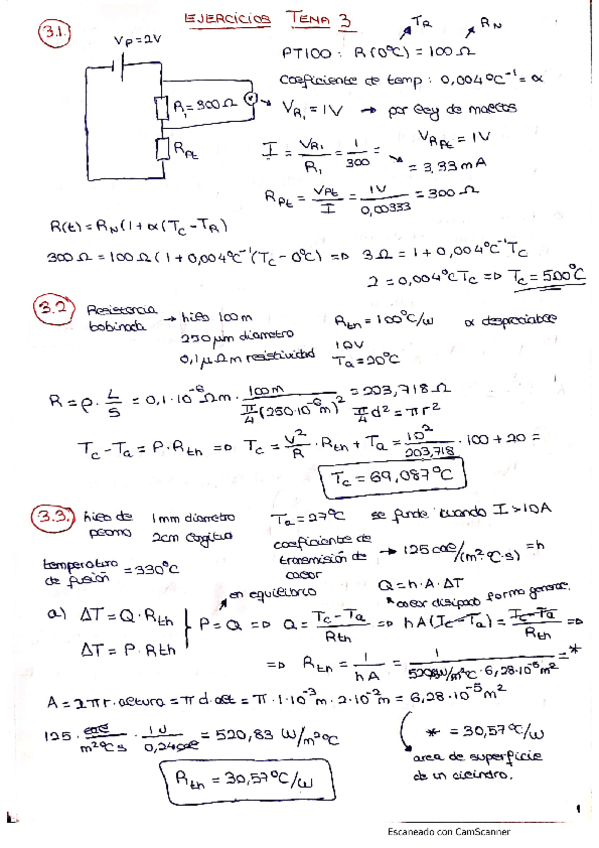 EJERCICIOS TEMA 3
3.1.
Vp=2V
R₁=300Ω
R_Pt
T_R R_N
PT100 : R(0°C) = 100 Ω
Coeficiente de temp : 0,004°C⁻¹ = α
V_R₁ = 1V → por ley de mallas
V_RPt = 1V
I = V_R₁/R₁ = 1/300 = 3,33 mA
R_Pt = V_Pt/I = 1V/0,00333 = 300 Ω
R(t) = R_N (1 + α(T_C - T_R)
300 Ω = 100 Ω (1 + 0,004°C⁻¹(T_C - 0°C) => 3Ω = 1 + 0,004°C⁻¹T_C
2 = 0,004°C T_C => T_C = 500°C
3.2
Resistencia bobinada → hilo 100m
250 μm diametro
0,1 μΩm resistividad
R_th = 100°C/W α despreciable
10V
T_a = 20°C
R = ρ · L/S = 0,1·10⁻⁶ Ωm · 100m / π/4 (250·10⁻⁶m)² = 203,718 Ω
π/4 d² = πr²
T_C - T_a = P·R_th => T_C = V²/R · R_th + T_a = 10²/203,718 · 100 + 20 =
T_C = 69,087°C
3.3.
hilo de plomo 1mm diametro
2cm longitud
T_a = 27°C se funde cuando I > 10A
temperatura de fusión = 330°C
coeficiente de transmisión de calor → 125 cal/(m²·°C·s) = h
en equilibrio
Q = h·A·ΔT
calor disipado forma general.
a) ΔT = Q·R_th
ΔT = P·R_th
P = Q => Q = T_C - T_a / R_th => hA(T_C - T_a) = T_C - T_a / R_th =>
=> R_th = 1/hA = 1 / 520,8W/m²°C · 6,28·10⁻⁵m² = *
A = 2πr·altura = π·d·alt = π·1·10⁻³m·2·10⁻²m = 6,28·10⁻⁵m²
125 · cal/m²°Cs · 1J/0,24cal = 520,83 W/m²°C
* = 30,57°C/W
area de superficie
de un cilindro.
R_th = 30,57°C/W
1
Escaneado con CamScanner